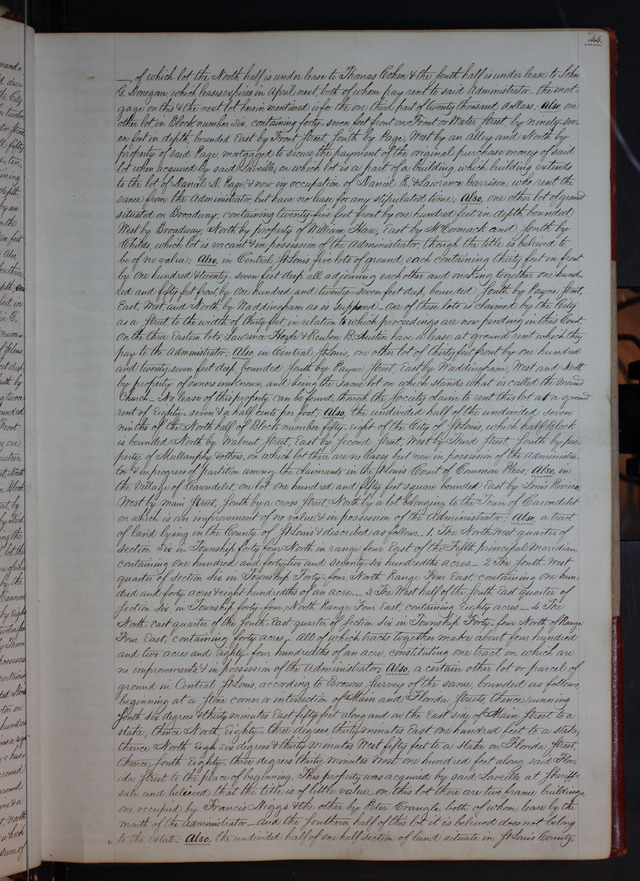 44
of which lot the North half is under lease to Thomas Cohen & the South half is under lease to John
G. Donegan which leases expire in April next, both of whom pay rent to said Administrator. the mort-
gage on this & the next lot herein mentioned is for the one third part of twenty thousand dollars; Also one
other lot in Block number Six, containing forty-seven feet front on Front or Water Street, by ninety-sev-
en feet in depth, bounded East by Front Street, South by Page, West by an alley and North by
property of said Page, mortgaged to secure the payment of the original purchase money of said
lot when acquired by said Laveille, on which lot is a part of a building which building extends
to the lot of Daniel D. Page & now in occupation of Daniel R. & Lawrence Garrison, who rent the
same from the Administrator but have no lease for any stipulated time; Also, one other lot of ground
situated on Broadway, containing twenty-five feet front by one hundred feet in depth bounded
West by Broadway, North by property of William Hare, East by McCormack and South by
Childs, which lot is vacant & in possession of the Administrator, though the title is believed to
be of no value; Also, in Central St. Louis, five lots of ground, each containing thirty feet in front
by one hundred & twenty-seven feet deep all adjoining each other and making together one hund-
red and fifty feet front by one hundred and twenty-seven feet deep, bounded South by Payne Street,
East, West and North, by Waddingham as is supposed - one of these lots is claimed by the City
as a Street to the width of thirty feet, in relation to which proceedings are now pending in this Court
on the three Eastern lots, Lawrence Hoyle & Reuben B. Austin have a lease at ground rent which they
pay to the Administrator; Also in Central St. Louis, one other lot of thirty feet front by one hundred
and twenty seven feet deep, bounded South by Payne Street, East by Waddingham, West and North
by property of owners unknown, and being the same lot on which stands what is called the Mormon
Church - No lease of this property can be found, though the Society claim to rent this lot at a ground
rent of Eighty-seven & a half cents per foot; Also, the undivided half of the undivided seven
ninths of the North half of Block number fifty-eight of the City of St. Louis, which half Block
is bounded North by Walnut Street, East by Second Street, West by Third Street South by pro-
perty of Mullanphy & others, on which lot there are no leases but now in possession of the Administra-
tor & in progress of partition among the claimants in the St. Louis Court of Common Pleas; Also, in
the Village of Carondelet, on lot One hundred and fifty feet square bounded East by Louis Riviere,
West by main Street, South by a cross Street, North by a lot belonging to the Town of Carondelet
on which is an improvement of no value & in possession of the Administrator; Also, a tract
of land lying in the County of St. Louis & described as follows - 1. The North West quarter of
section Six in Township forty-four North in range four East of the Fifth principal Meridian,
containing one hundred and forty-two and seventy-six hundredths acres - 2 The South West
quarter of Section Six in Township Forty-four North Range Four East containing one hun-
dred and forty acres & eight hundredths of an acre - 3 The West half of the South East quarter of
Section Six, in Township forty-four, North Range Four East containing Eighty acres - 4 The
North East quarter of the South East quarter of Section Six in Township Forty-four North of Range
Four East, containing forty acres, all of which tracts together make about four hundred
and two acres and Eighty-four hundredths of an acre, constituting one tract on which are
no improvements & in possession of the Administrator; Also, a certain other lot or parcel of
ground in Central St. Louis, according to Browns Survey of the same, bounded as follows,
beginning at a stone corner at intersection of Main and Florida Streets, thence running
South six degrees & thirty minutes East fifty feet along and on the East side of Main Street to a
stake, thence North, Eighty-three degrees thirty minutes East one hundred feet to a stake,
thence North Eigh six degrees & thirty minutes West fifty feet to a stake on Florida Street,
thence South Eighty three degrees thirty minutes West one hundred feet along said Flor-
ida Street to the place of beginning. This property was acquired by said Laveille at Sheriff's
sale and believed that the title is of little value, on this lot there are two frame buildings
one occupied by Francis Niggs & the other by Peter Crangle, both of whom lease by the
month of the Administrator - And the Southern half of this lot it is believed does not belong
to the Estate; Also, the undivided half of one half section of land situate in St. Louis County,